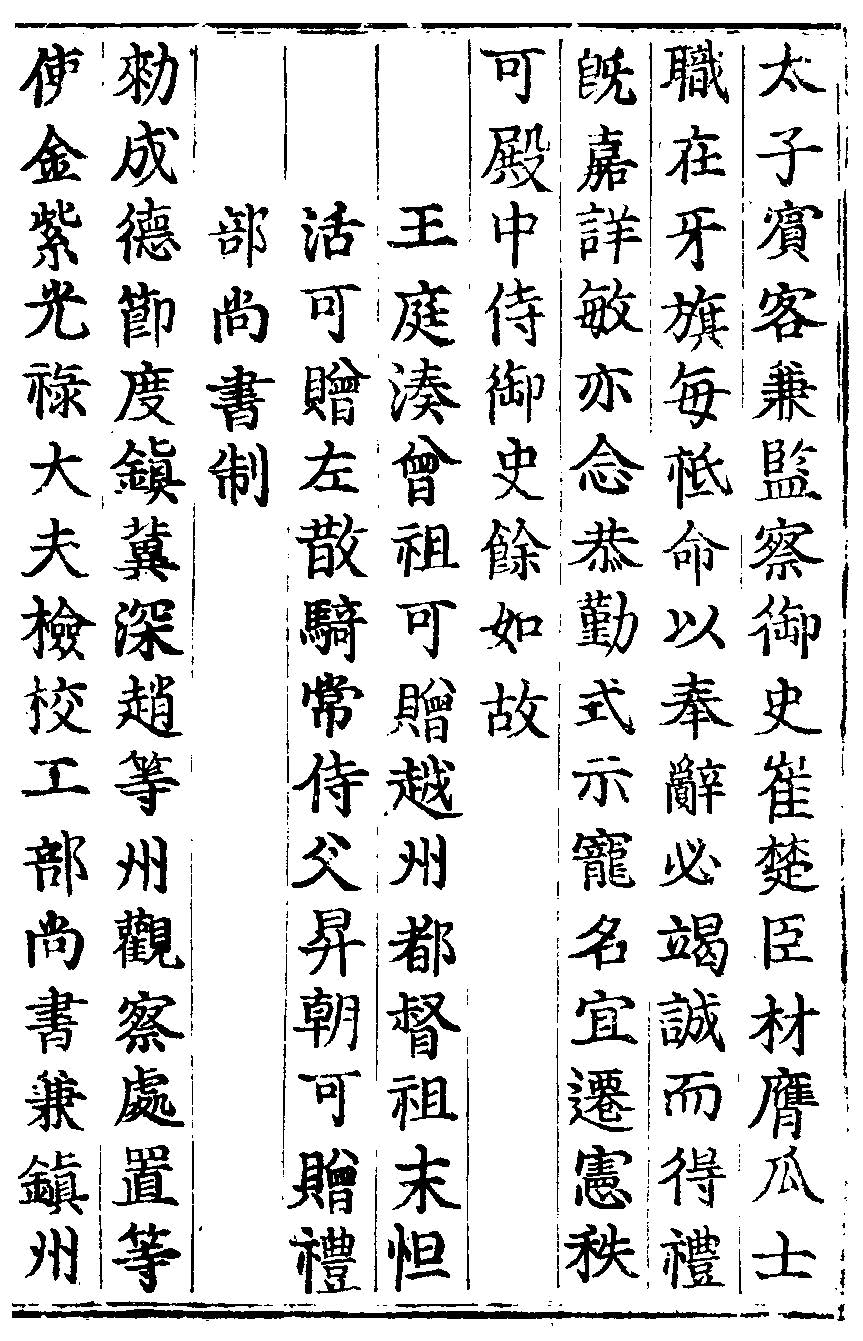 太子賓客兼監察御史崔楚臣材膺瓜士
職在牙旗每袛命以奉辭必竭誠而得禮
旣嘉詳敏亦念恭勤式示寵名宜遷憲秩
可殿中侍御史餘如故
王庭湊曾祖可贈越州都督祖末怛
活可贈左散騎常侍父昇朝可贈禮
部尚書制
勑成德節度鎮冀深趙等州觀察處置等
使金紫光祿大夫檢校工部尚書兼鎮州